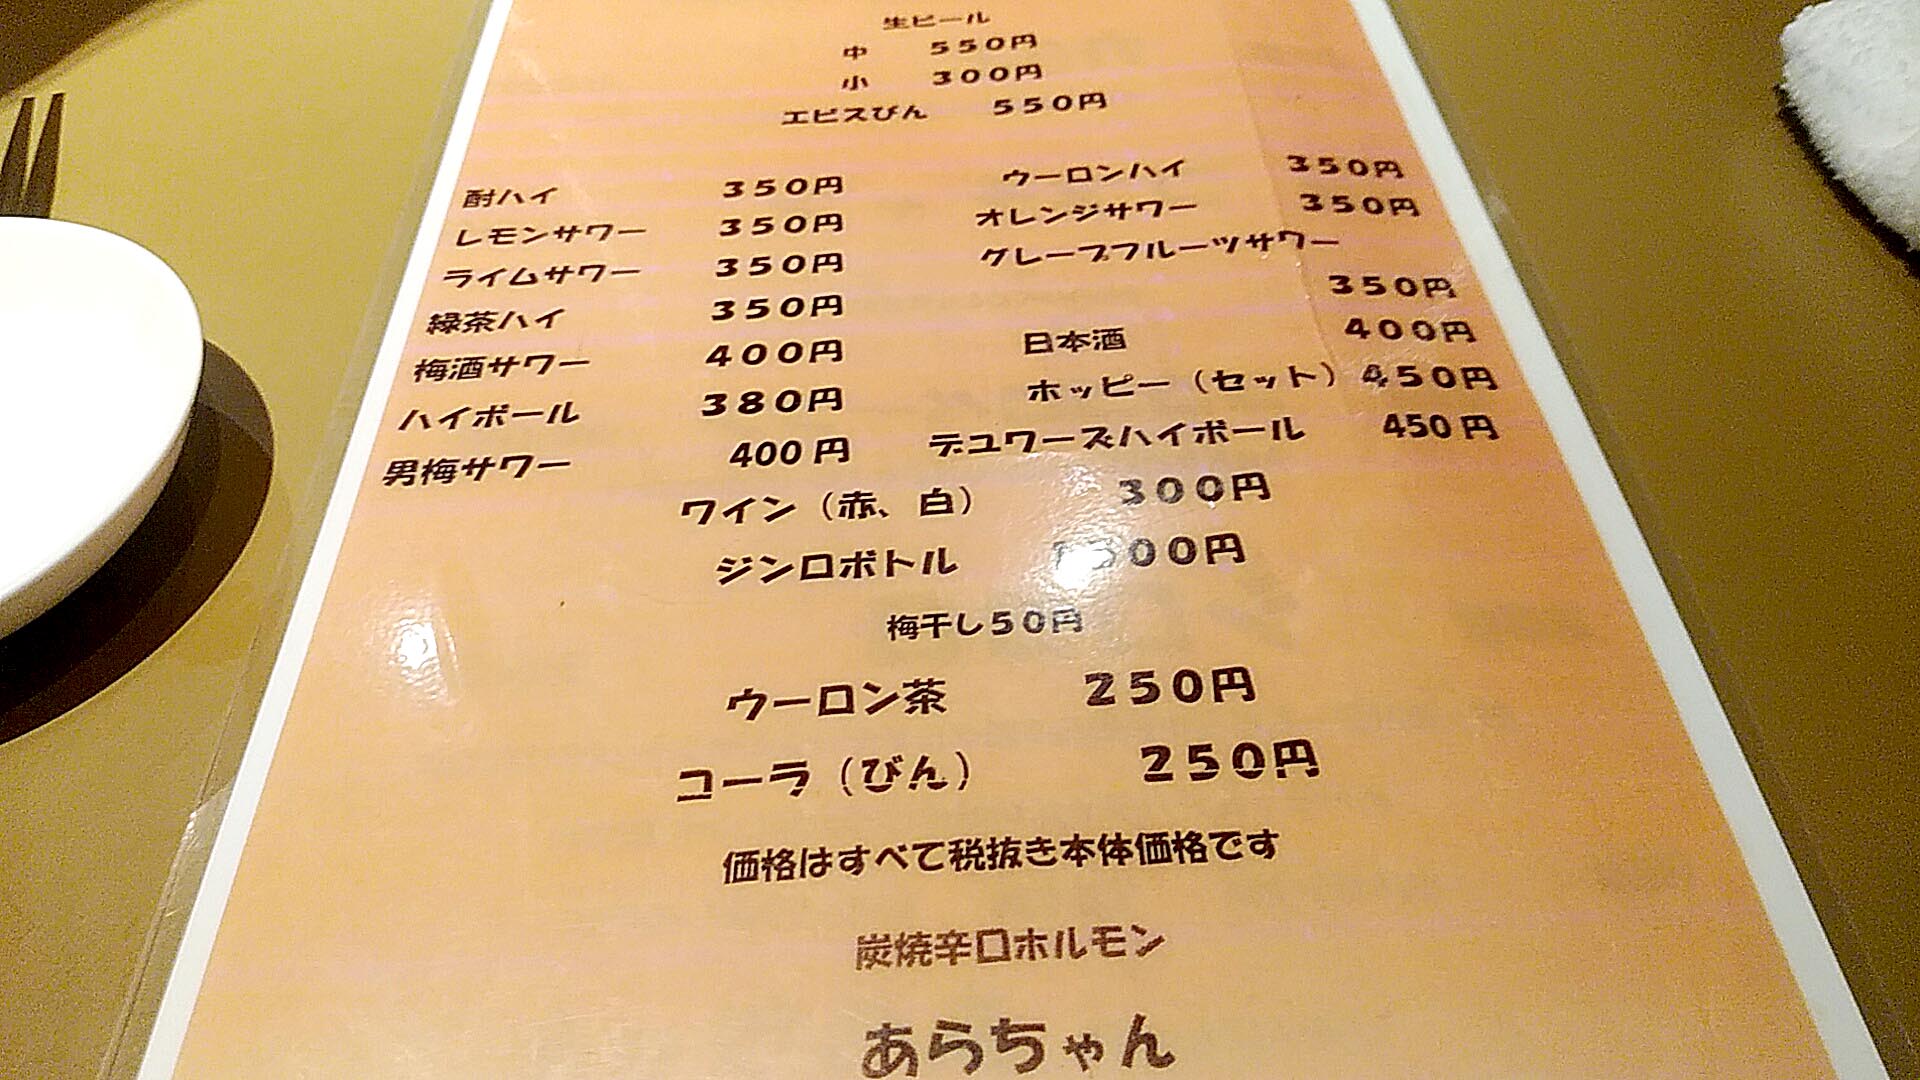 生ビール
中 550円
小 300円
エビスびん 550円
酎ハイ 350円 ウーロンハイ 350円
レモンサワー 350円 オレンジサワー 350円
ライムサワー 350円 グレープフルーツサワー
緑茶ハイ 350円 350円
梅酒サワー 400円 日本酒 400円
ハイボール 380円 ホッピー（セット） 450円
男梅サワー 400円 デュワーズハイボール 450円
ワイン（赤、白） 300円
ジンロボトル
梅干し50円
ウーロン茶 250円
コーラ（びん） 250円
価格はすべて税抜き本体価格です
炭焼辛口ホルモン
あらちゃん